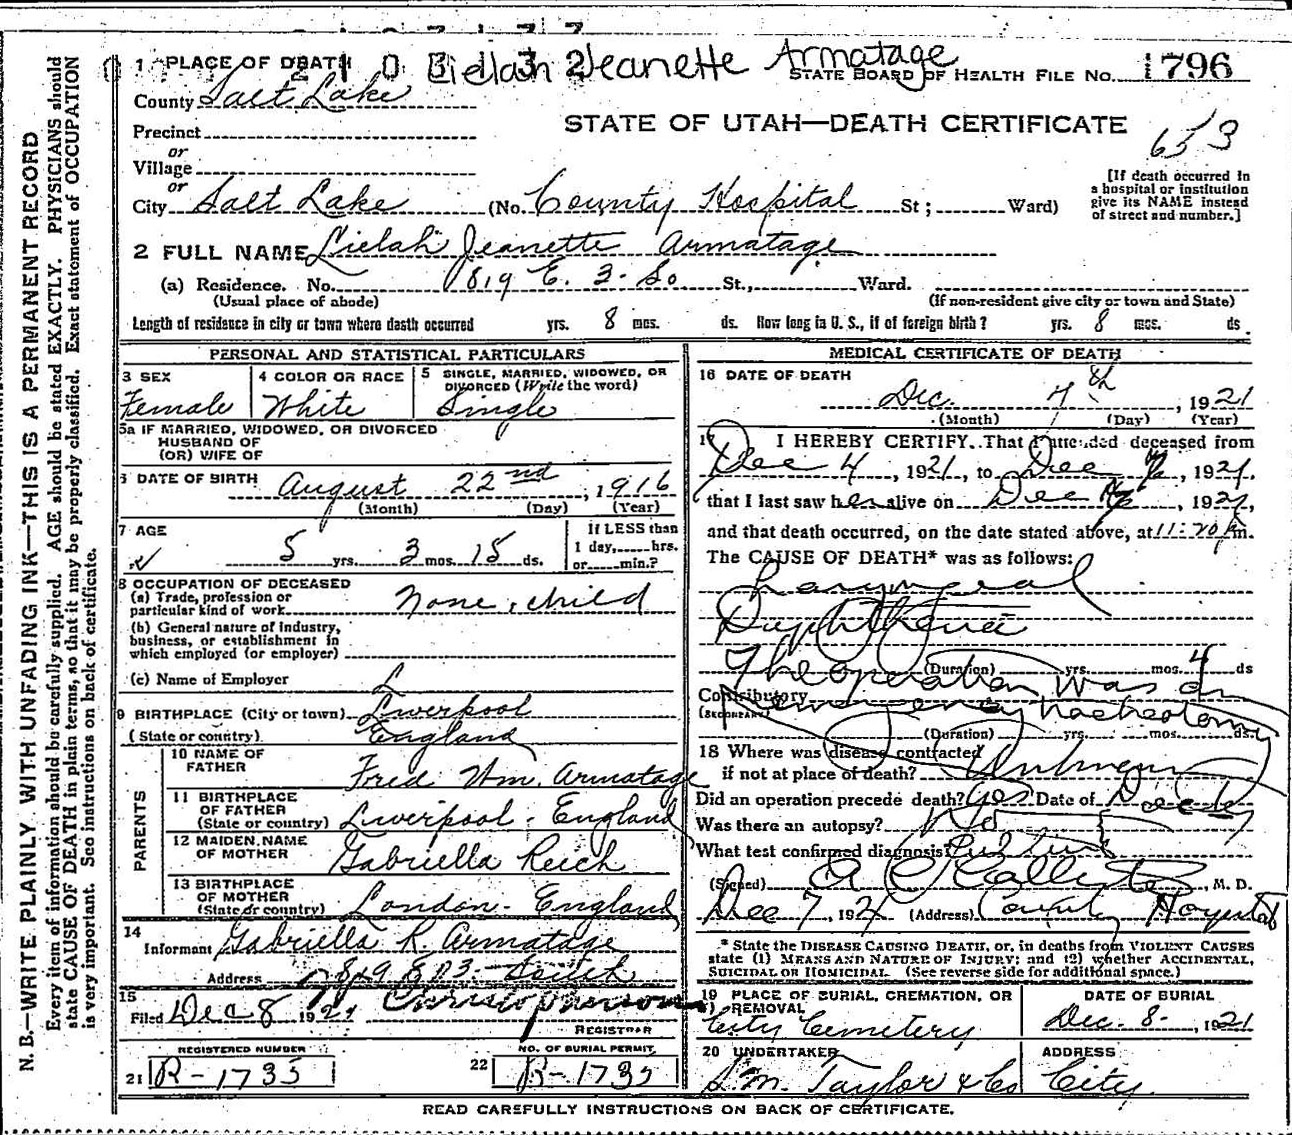 1 PLACE OF DEATH
Jeanette Armatage
STATE BOARD OF HEALTH FILE NO. 1796
County Salt Lake
STATE OF UTAH—DEATH CERTIFICATE
653
Precinct
or
Village
or
City Salt Lake (No. County Hospital St; Ward)
[If death occurred in
a hospital or institution
give its NAME instead
of street and number.]
2 FULL NAME Lielah Jeanette Armatage
(a) Residence. No. 819 E. 3- So St., Ward.
(Usual place of abode) (If non-resident give city or town and State)
Length of residence in city or town where death occurred yrs. 8 mos. ds. How long in U. S., if of foreign birth? yrs. 8 mos. ds.
PERSONAL AND STATISTICAL PARTICULARS
3 SEX
Female
4 COLOR OR RACE
White
5 SINGLE, MARRIED, WIDOWED, OR
DIVORCED (Write the word)
Single
5a IF MARRIED, WIDOWED, OR DIVORCED
HUSBAND OF
(OR) WIFE OF
6 DATE OF BIRTH August 22nd, 1916
(Month) (Day) (Year)
7 AGE
5 yrs. 3 mos. 15 ds.
if LESS than
1 day,......hrs.
or......min.?
8 OCCUPATION OF DECEASED
(a) Trade, profession or
particular kind of work None, child
(b) General nature of Industry,
business, or establishment in
which employed (or employer)
(c) Name of Employer
9 BIRTHPLACE (City or town) Liverpool
(State or country) England
PARENTS
10 NAME OF
FATHER Fred Wm. Armatage
11 BIRTHPLACE
OF FATHER
(State or country) Liverpool - England
12 MAIDEN NAME
OF MOTHER Gabriella Reich
13 BIRTHPLACE
OF MOTHER
(State or country) London - England
14
Informant Gabriella R. Armatage
Address 819 E 3 - South
15
Filed Dec 8 1921 Christopherson
REGISTRAR
REGISTERED NUMBER
21 R-1735
NO. OF BURIAL PERMIT
22 R-1735
MEDICAL CERTIFICATE OF DEATH
16 DATE OF DEATH
Dec. 7th, 1921
(Month) (Day) (Year)
17 I HEREBY CERTIFY, That I attended deceased from
Dec 4, 1921, to Dec 7, 1921,
that I last saw her alive on Dec 7, 1921,
and that death occurred, on the date stated above, at 11:20 m.
The CAUSE OF DEATH* was as follows:
Laryngeal
Diphtheria
(Duration) yrs. mos. 4 ds
The operation was an
Contributory
(SECONDARY)
emergency tracheotomy
(Duration) yrs. mos. ds.
18 Where was disease contracted
if not at place of death? Unknown
Did an operation precede death? Yes Date of Dec 6
Was there an autopsy? No
What test confirmed diagnosis? Culture
(Signed) A C Callister, M. D.
Dec 7, 1921 (Address) County Hospital
* State the DISEASE CAUSING DEATH, or, in deaths from VIOLENT CAUSES
state (1) MEANS AND NATURE OF INJURY; and (2) whether ACCIDENTAL,
SUICIDAL OR HOMICIDAL. (See reverse side for additional space.)
19 PLACE OF BURIAL, CREMATION, OR
REMOVAL
City Cemetery
DATE OF BURIAL
Dec. 8-, 1921
20 UNDERTAKER
S. M. Taylor & Co
ADDRESS
City
READ CAREFULLY INSTRUCTIONS ON BACK OF CERTIFICATE.
N. B.—WRITE PLAINLY, WITH UNFADING INK—THIS IS A PERMANENT RECORD
Every item of information should be carefully supplied. AGE should be stated EXACTLY. PHYSICIANS should
state CAUSE OF DEATH in plain terms, so that it may be properly classified. Exact statement of OCCUPATION
is very important. See instructions on back of certificate.